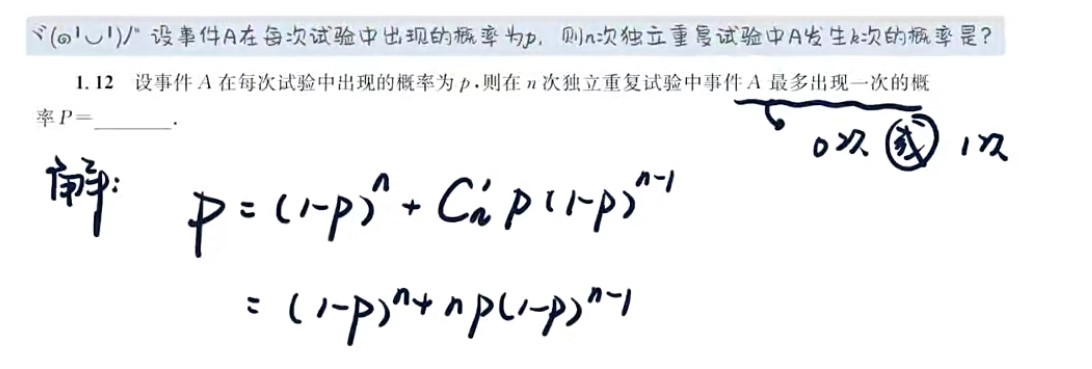 ヾ(๑╹◡╹)ﾉ" 设事件A在每次试验中出现的概率为p，则n次独立重复试验中A发生k次的概率是？
1.12 设事件 A 在每次试验中出现的概率为 p，则在 n 次独立重复试验中事件 A 最多出现一次的概
率 P=________.
0次 或 1次
解:
P = (1-p)^n + C_n^1 p (1-p)^{n-1}
= (1-p)^n + np(1-p)^{n-1}